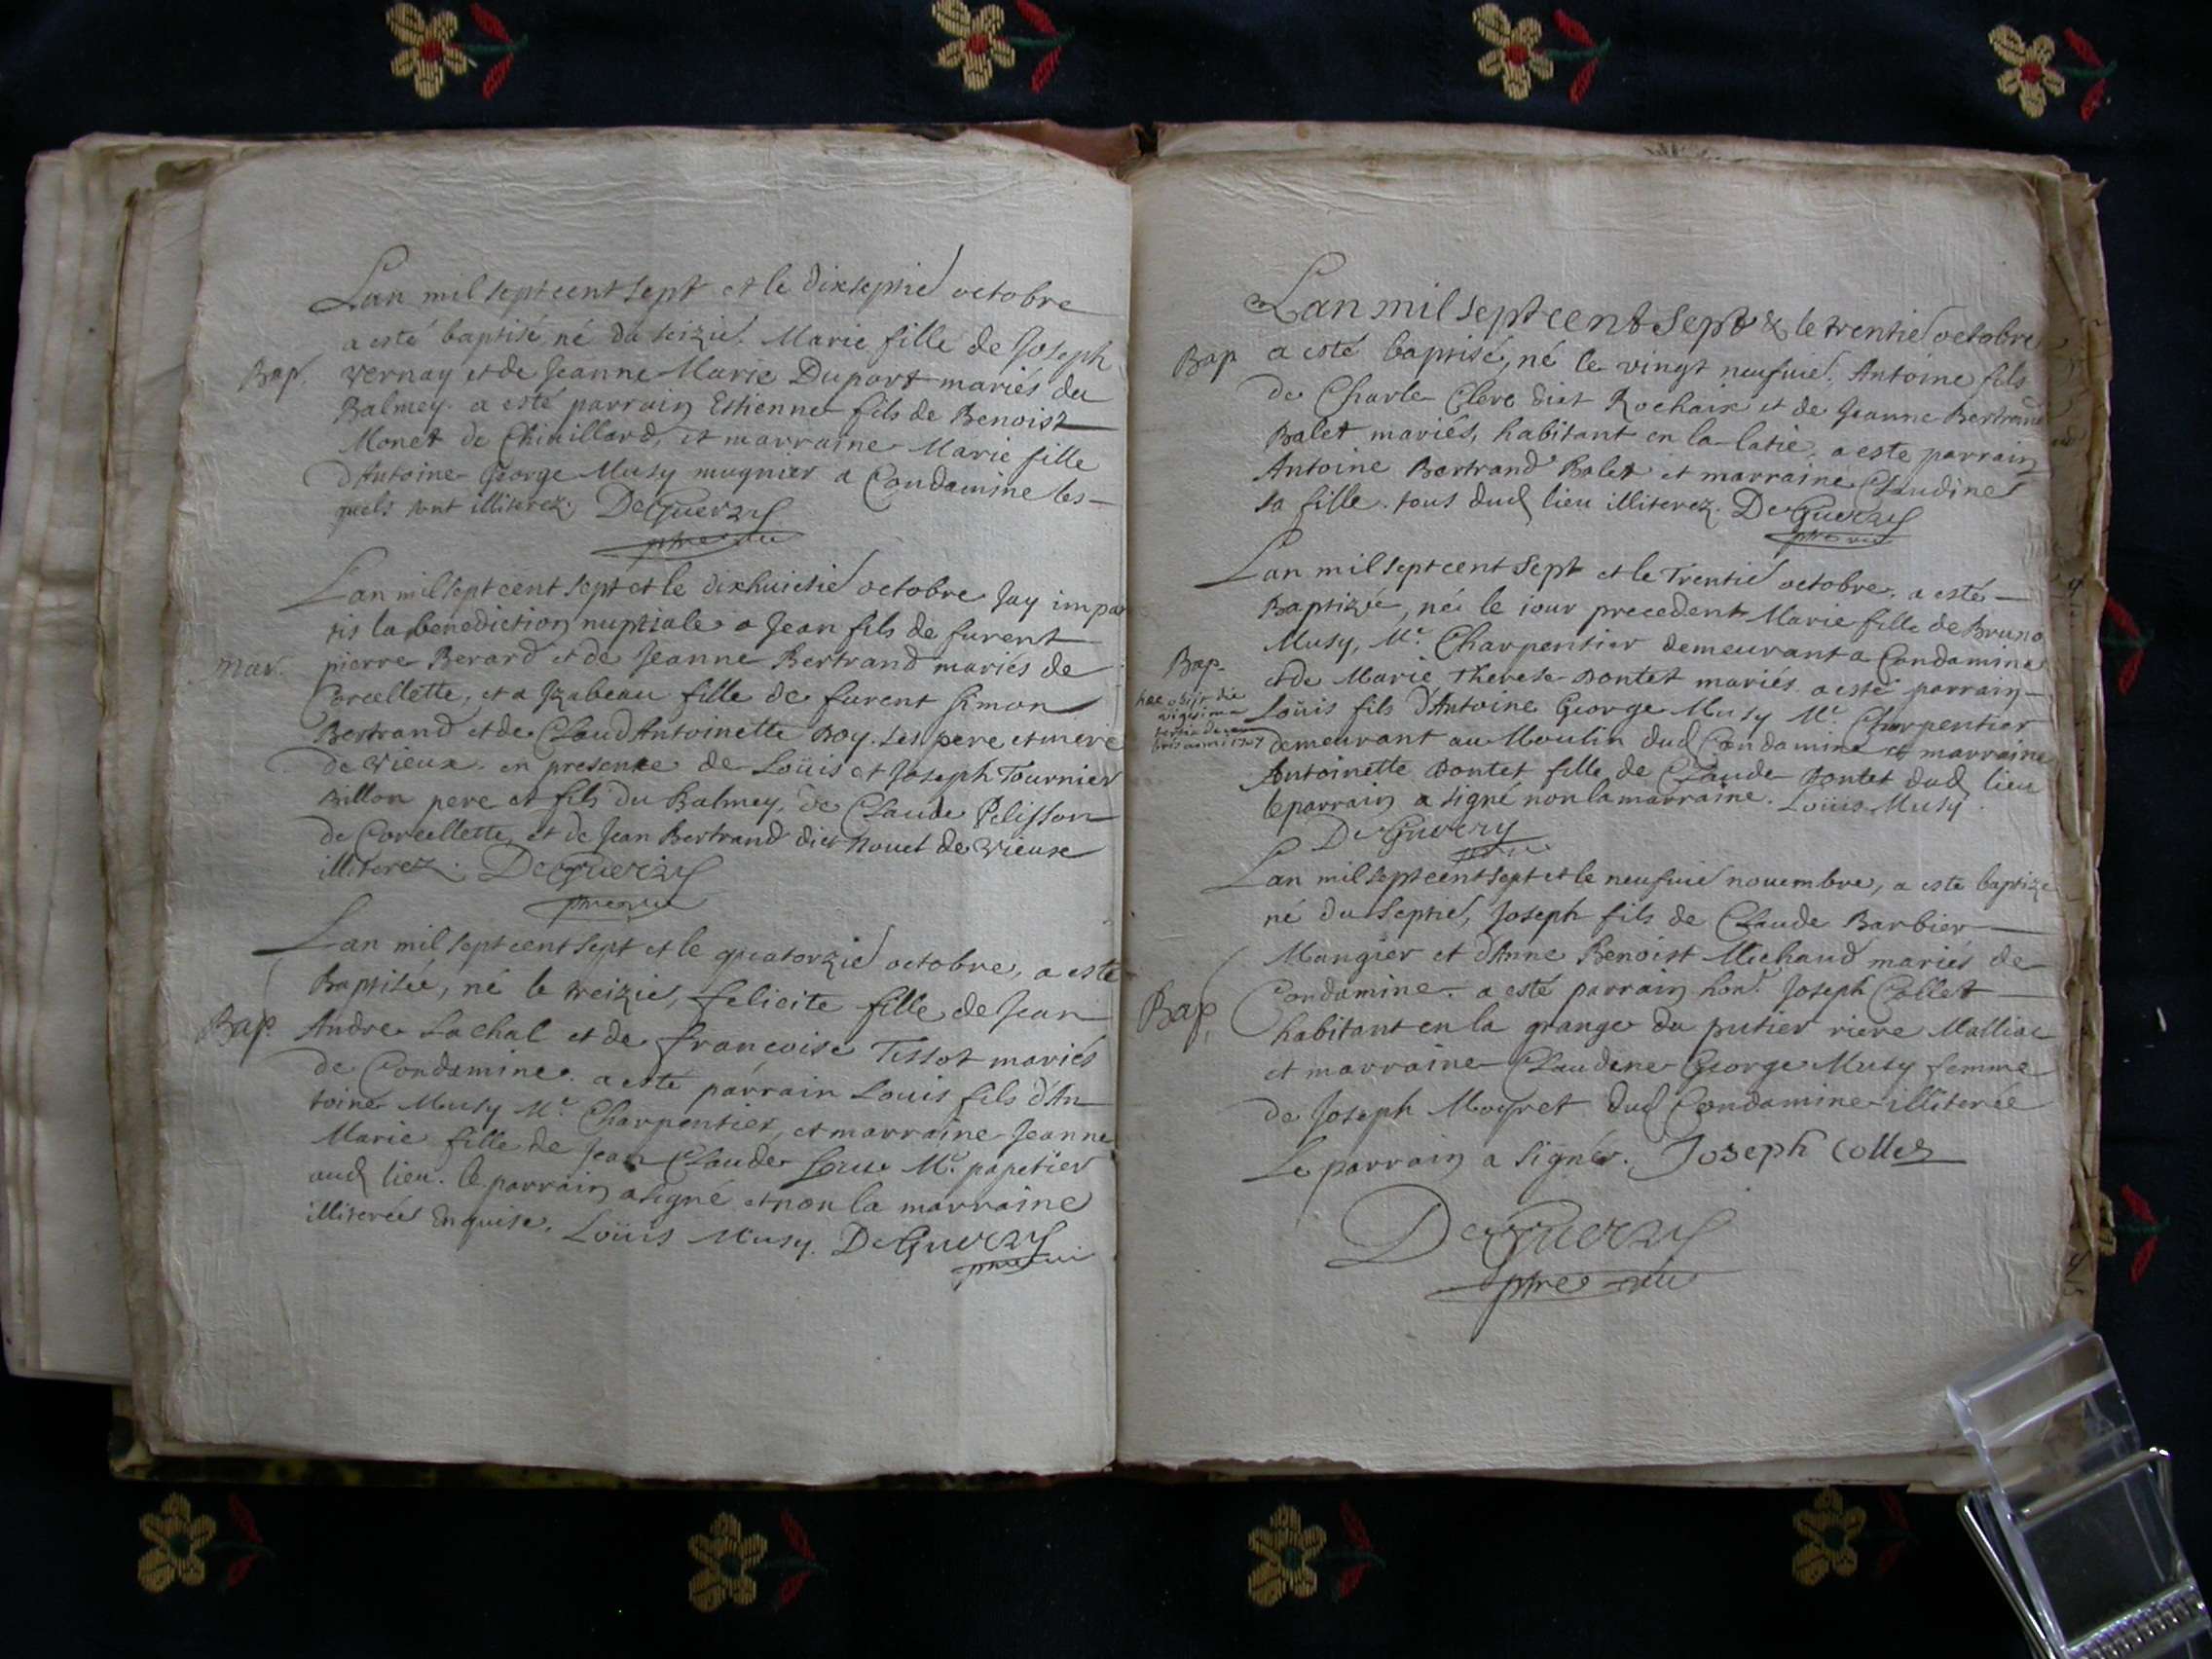 Lan mil sept cent sept et le dixseptié octobre
a esté baptisé né du seizié. Marie fille de Joseph
Bap. vernay et de Jeanne Marie Duport mariés du
Balmey. a esté parrain Estienne fils de Benoist
Monet de Chivillard, et marraine Marie fille
d'Antoine George Musy mugnier a Condamine les-
quels sont illiterez. DeGuerzy
ptre vic
Lan mil sept cent sept et le dixhuictié octobre Jay impar
tis la benediction nuptiale a Jean fils de furent
mar. pierre Berard et de Jeanne Bertrand mariés de
Corcellette, et a Izabeau fille de furent Simon
Bertrand et de Claud Antoinette Boy. Les pere et mere
de vieux. en presence de Loüis et Joseph Tournier
Billon pere et fils du Balmey, de Claude Pelisson
de Corcellette, et de Jean Bertrand dict nouet de vieux
illiterez. DeGuerzy
ptre vic
Lan mil sept cent sept et le quatorzié octobre, a esté
Baptisée, né le treizié, felicite fille de Jean
Bap. Andre Lachal et de francoise Tissot mariés
de Condamine. a esté parrain Louis fils d'An
toine Musy Mr. Charpentier, et marraine Jeanne
Marie fille de Jean Claude Mr. papetier
aud lieu. le parrain a signé et non la marraine
illiterée Enquise. Loüis Musy. DeGuerzy
ptre vic
Lan mil sept cent sept & le trentié octobre
Bap a esté baptisé, né le vingt neufuié. Antoine fils
de Charle Clerc dict Rochaix et de Jeanne Bertrand
Balet mariés, habitant en la latie, a este parrain
Antoine Bertrand Balet et marraine Claudine
sa fille. tous dud lieu illiterez. DeGuerzy
ptre vic
Lan mil sept cent sept et le Trentié octobre. a esté
Baptizée, née le iour precedent Marie fille de Bruno
Musy, Mr. Charpentier demeurant a Condamine
Bap. et de Marie Therese Dontet mariés. a esté parrain
hæc obijt die
vigesima
tertia decem
bris anni 1707
Loüis fils d'Antoine George Musy Mr. Charpentier
demeurant au Moulin dud Condamine et marraine
Antoinette Dontet fille de Claude Dontet dud lieu
le parrain a signé non la marraine. Loüis Musy.
DeGuerzy
ptre vic
Lan mil sept cent sept et le neufuié nouembre, a este baptize
né du Septié, Joseph fils de Claude Barbier
Mangier et d'Anne Benoist Michaud mariés de
Bap. Condamine. a esté parrain hon. Joseph Collet
habitant en la grange du putier riere Malliac
et marraine Claudine George Musy femme
de Joseph Moyret dud Condamine illiterée
Le parrain a signér. Joseph Collet
DeGuerzy
ptre vic